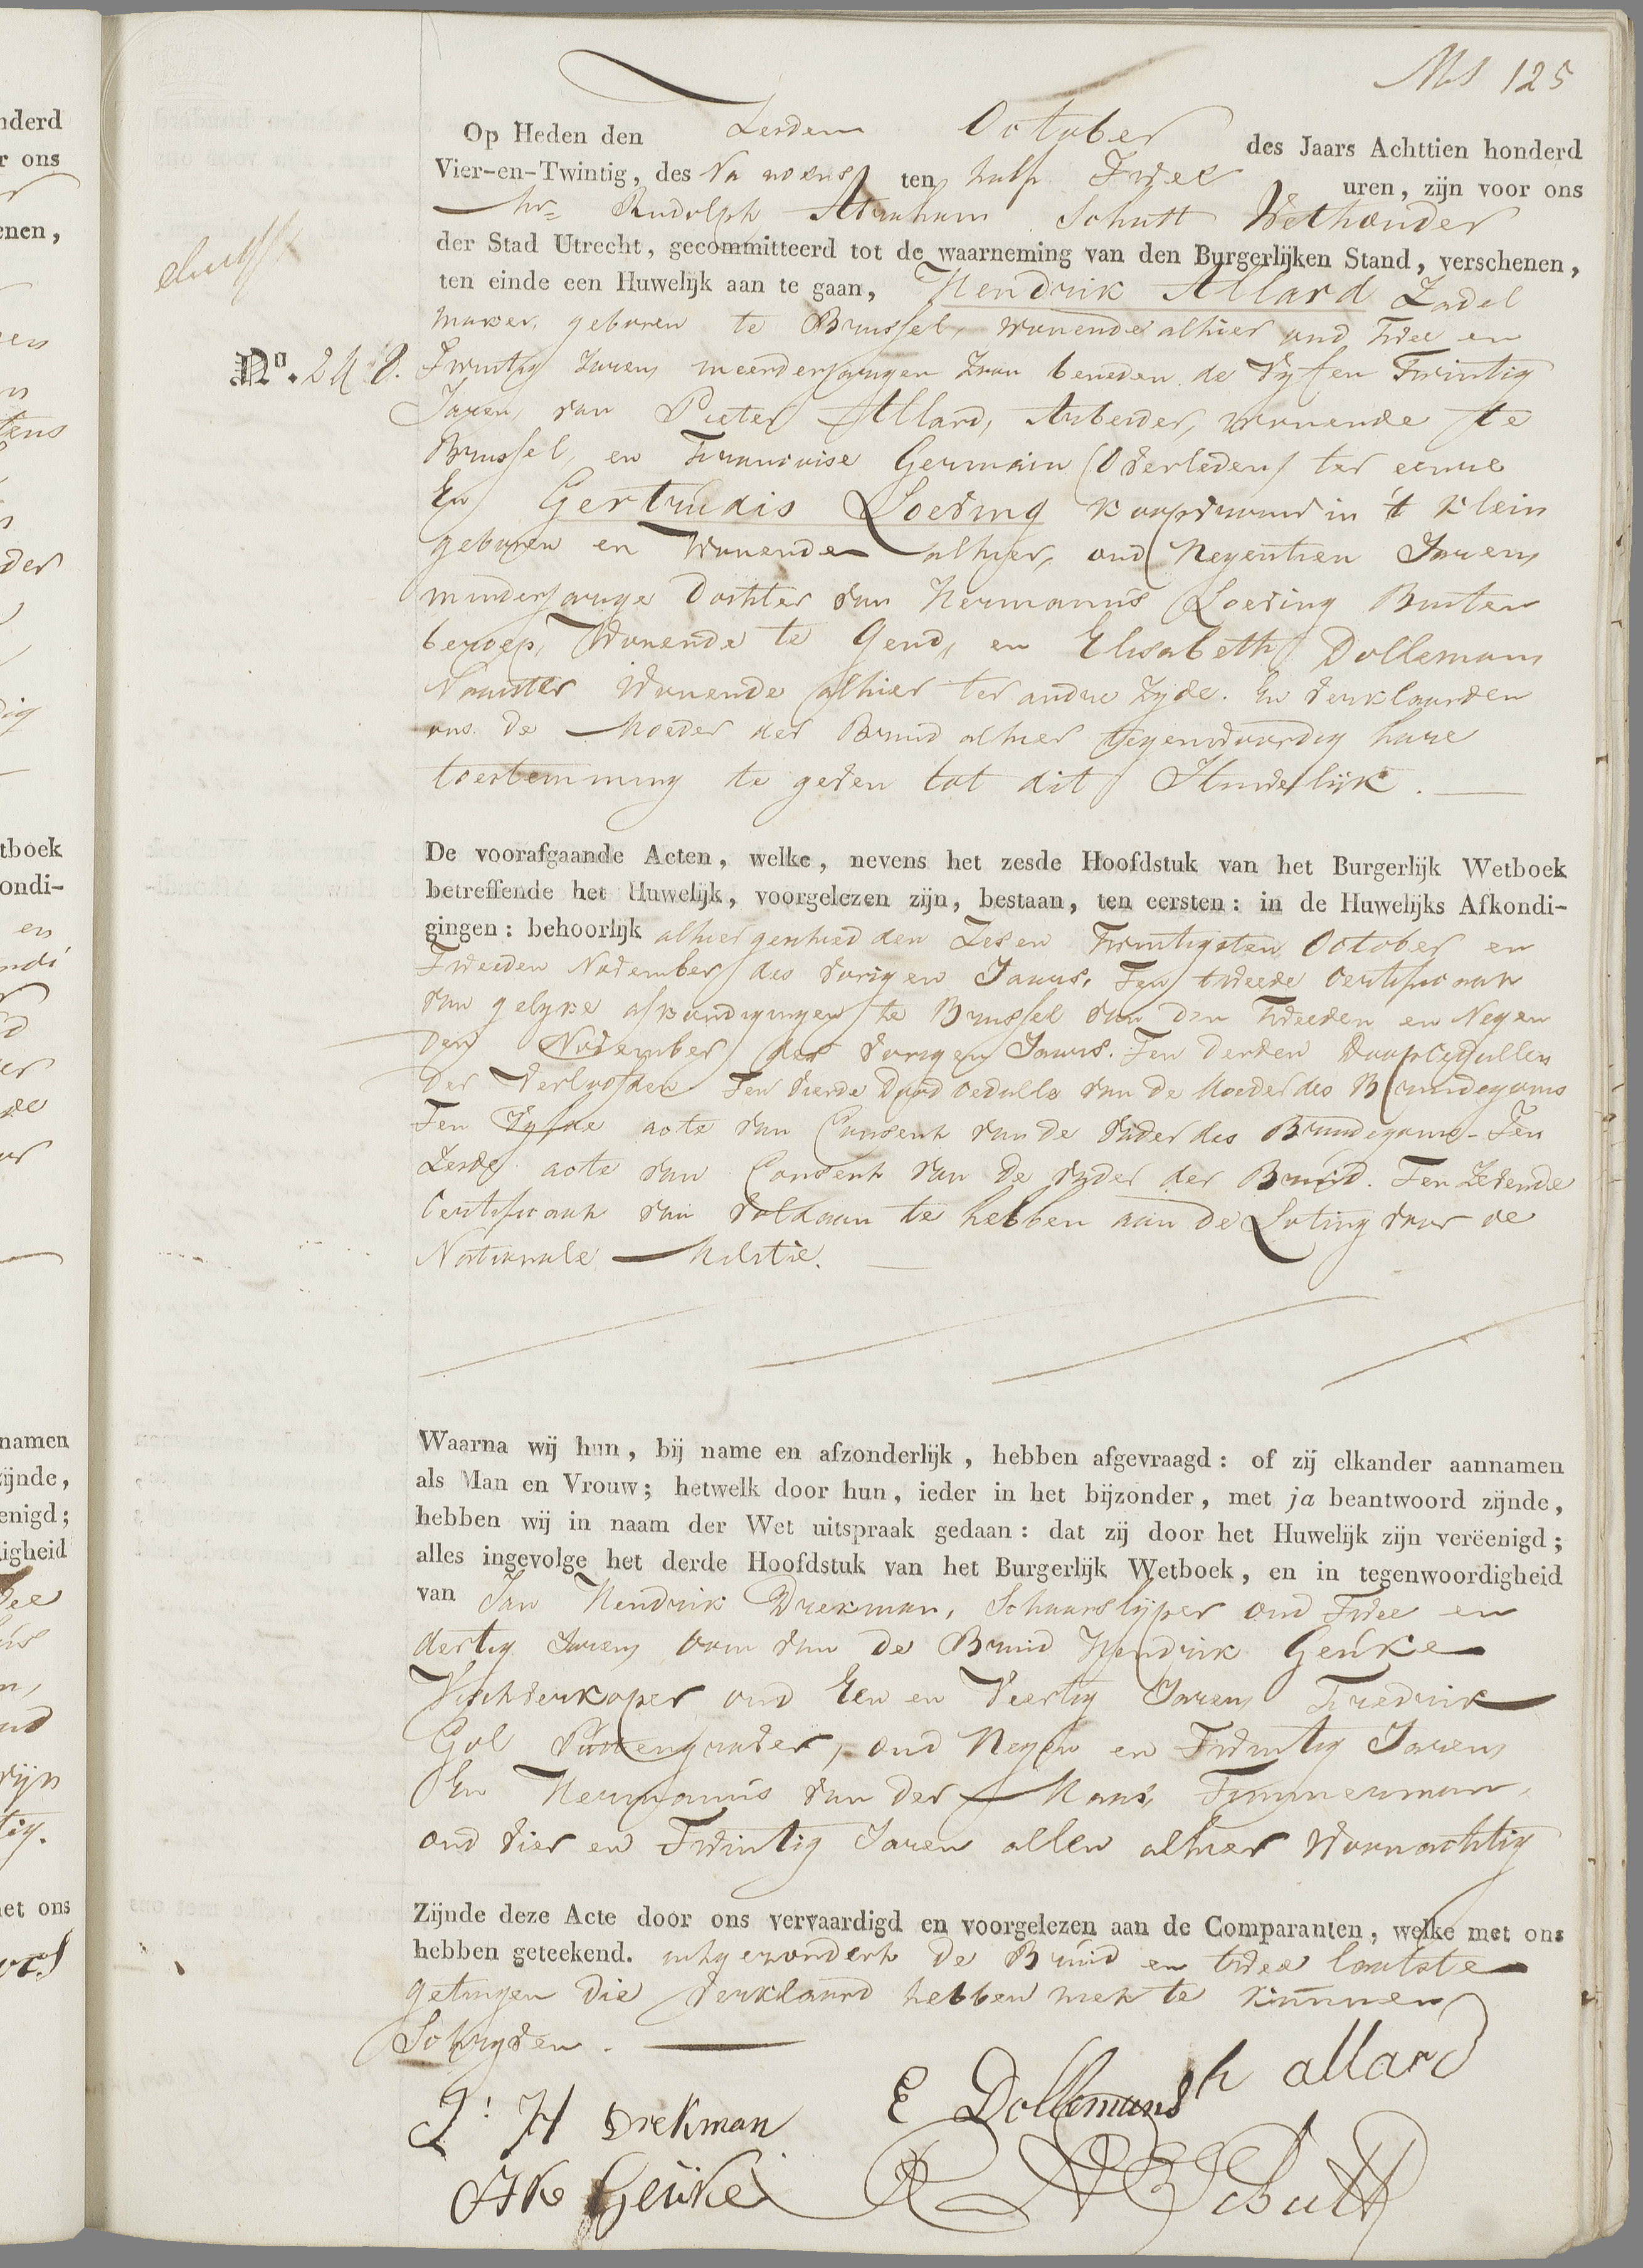 125
Op Heden den Zesden October des Jaars Achttien honderd
Vier-en-Twintig, des Na noens ten half Twee uren, zijn voor ons
Mr. Rudolph Abraham Schutt Wethouder
der Stad Utrecht, gecommitteerd tot de waarneming van den Burgerlijken Stand, verschenen,
ten einde een Huwelijk aan te gaan, Hendrik Allard Zadel
maker, geboren te Brussel, wonende alhier oud Twee en
No. 240. Twintig Jaren, meerderjarigen Zoon beneden de Vyf en Twintig
Jaren, van Pieter Allard, Arbeider, wonende te
Brussel, en Francoise Germain (Overleden) ter eenre
En Gertrudis Loeving Koopvrouw in 't Klein
geboren en Wonende alhier, oud Negentien Jaren,
minderjarige Dochter van Hermanus Loeving Buiten
beroep, Wonende te Gend, en Elisabeth Dollemans
Naaister Wonende alhier ter andre Zyde. En verklaarden
ons de Moeder der Bruid alhier tegenwoordig hare
toestemming te geven tot dit Huwelijk.
De voorafgaande Acten, welke, nevens het zesde Hoofdstuk van het Burgerlijk Wetboek
betreffende het Huwelijk, voorgelezen zijn, bestaan, ten eersten: in de Huwelijks Afkondi-
gingen: behoorlijk alhier geschied den Zes en Twintigsten October en
Tweeden November des Vorigen Jaars. Ten tweede Certificaat
van gelyke afkondigingen te Brussel van den Tweeden en Negen
den November des Vorigen Jaars. Ten derden Doopcedullen
der Verloofden Ten Vierde Dood cedulle van de Moeder des Bruidegoms
Ten Vyfde acte van Consent van de Vader des Bruidegoms - Ten
Zesde acte van Consent van de Vader der Bruid. Ten Zevende
Certificaat van Voldaan te hebben aan de Loting voor de
Nationale Militie.
Waarna wij hun, bij name en afzonderlijk, hebben afgevraagd: of zij elkander aannamen
als Man en Vrouw; hetwelk door hun, ieder in het bijzonder, met ja beantwoord zijnde,
hebben wij in naam der Wet uitspraak gedaan: dat zij door het Huwelijk zijn verëenigd;
alles ingevolge het derde Hoofdstuk van het Burgerlijk Wetboek, en in tegenwoordigheid
van Jan Hendrik Driekman, Schaarslijper oud Twee en
dertig Jaren, oom van de Bruid Hendrik Geuke
Vischverkoper oud Een en Veertig Jaren, Fredrik
Gol Puttengraver, oud Negen en Twintig Jaren
En Hermanus van der Maas, Timmerman,
oud vier en Twintig Jaren allen alhier Woonachtig
Zijnde deze Acte door ons vervaardigd en voorgelezen aan de Comparanten, welke met ons
hebben geteekend. uitgezondert de Bruid en twee laatste
getuigen die verklaard hebben niet te kunnen
Schryven.
h allard
J: H Driekman E Dollemans
Hk Geuke R A Schutt